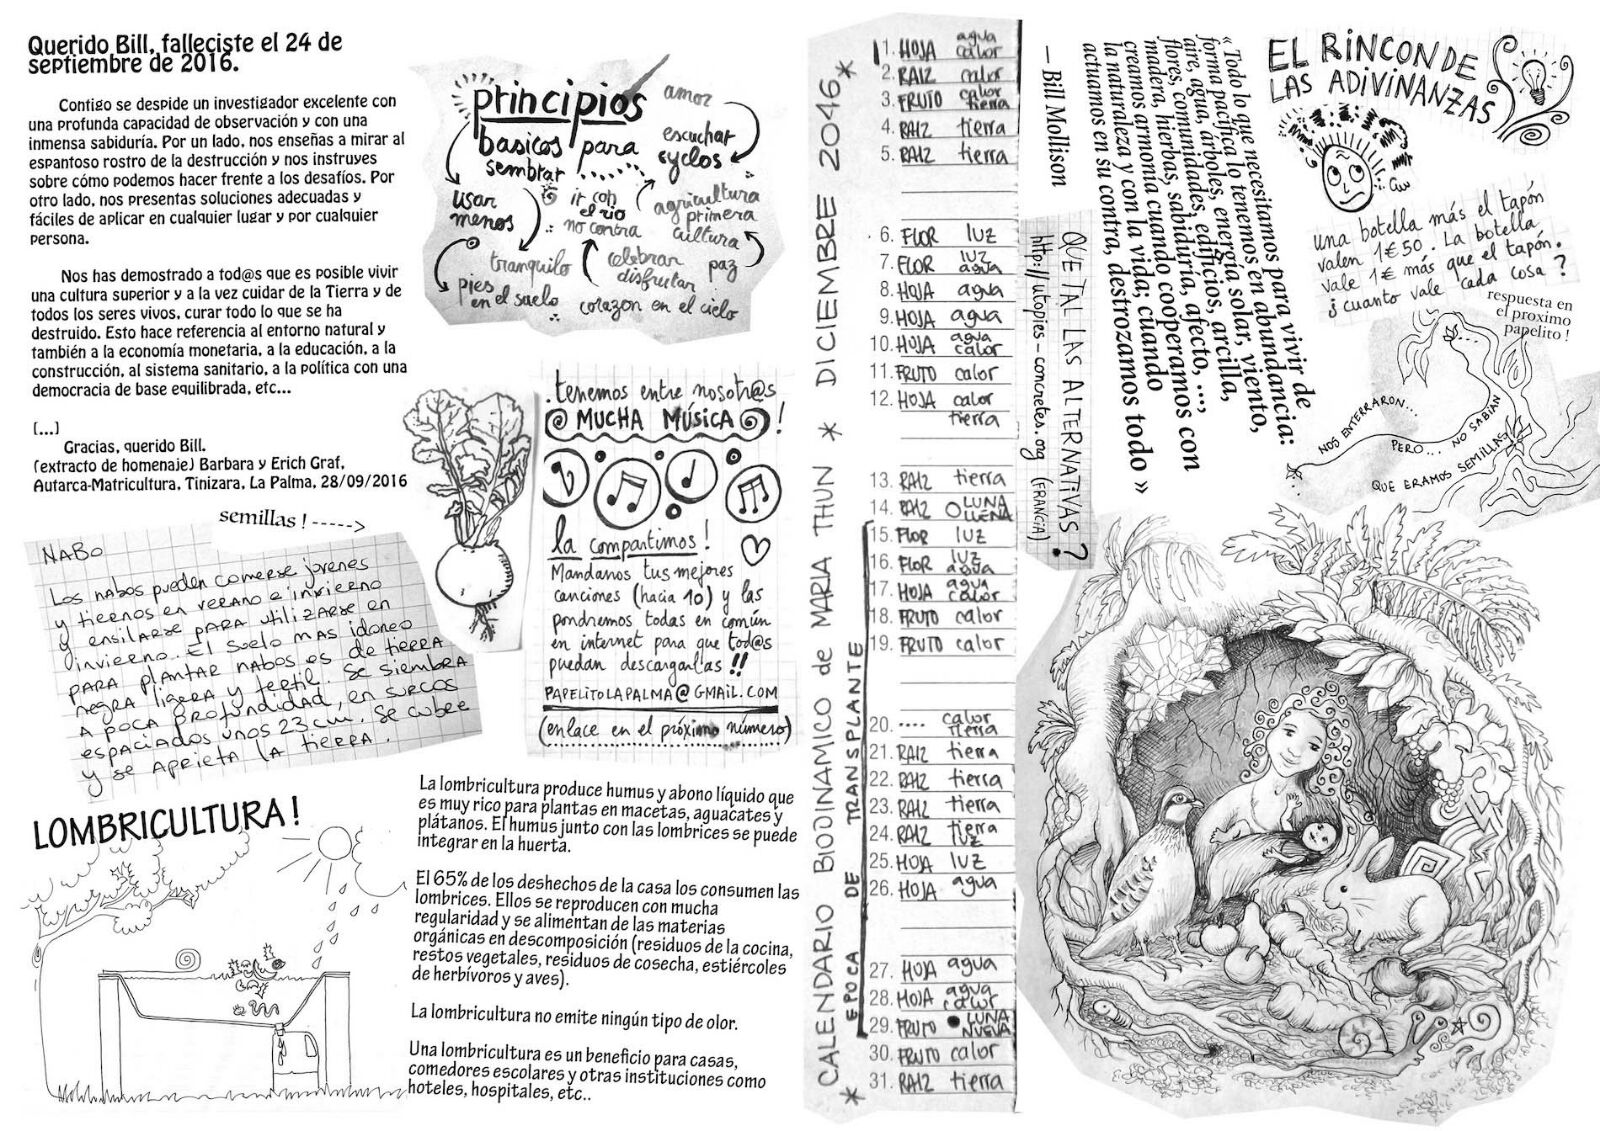 Querido Bill, falleciste el 24 de
septiembre de 2016.
Contigo se despide un investigador excelente con
una profunda capacidad de observación y con una
inmensa sabiduría. Por un lado, nos enseñas a mirar al
espantoso rostro de la destrucción y nos instruyes
sobre cómo podemos hacer frente a los desafíos. Por
otro lado, nos presentas soluciones adecuadas y
fáciles de aplicar en cualquier lugar y por cualquier
persona.
Nos has demostrado a tod@s que es posible vivir
una cultura superior y a la vez cuidar de la Tierra y de
todos los seres vivos, curar todo lo que se ha
destruido. Esto hace referencia al entorno natural y
también a la economía monetaria, a la educación, a la
construcción, al sistema sanitario, a la política con una
democracia de base equilibrada, etc...
(...)
Gracias, querido Bill.
(extracto de homenaje) Barbara y Erich Graf,
Autarca-Matricultura, Tinizara, La Palma, 28/09/2016
semillas ! ----->
NABO
Los nabos pueden comerse jovenes
y tiernos en verano e invierno
y ensilarse para utilizarse en
invierno. El suelo mas idoneo
para plantar nabos es de tierra
negra ligera y fertil. Se siembra
a poca profundidad, en surcos
espaciados unos 23 cm. Se cubre
y se aprieta la tierra.
principios
basicos para
sembrar ......
amor
escuchar
cyclos
usar
menos
ir con
el rio
no contra
agricultura
primera
cultura
tranquilo
celebrar
disfrutar
paz
pies
en el suelo
corazon en el cielo
. tenemos entre nosotr@s
MUCHA MÚSICA !
la compartimos !
Mandanos tus mejores
canciones (hacia 10) y las
pondremos todas en común
en internet para que tod@s
puedan descargarlas !!
PAPELITOLAPALMA@GMAIL.COM
(enlace en el próximo número)
LOMBRICULTURA !
La lombricultura produce humus y abono líquido que
es muy rico para plantas en macetas, aguacates y
plátanos. El humus junto con las lombrices se puede
integrar en la huerta.
El 65% de los deshechos de la casa los consumen las
lombrices. Ellos se reproducen con mucha
regularidad y se alimentan de las materias
orgánicas en descomposición (residuos de la cocina,
restos vegetales, residuos de cosecha, estiércoles
de herbívoros y aves).
La lombricultura no emite ningún tipo de olor.
Una lombricultura es un beneficio para casas,
comedores escolares y otras instituciones como
hoteles, hospitales, etc..
* CALENDARIO BIODINAMICO de MARIA THUN * DICIEMBRE 2046 *
EPOCA DE TRANSPLANTE
1. HOJA agua calor
2. RAIZ calor
3. FRUTO calor tierra
4. RAIZ tierra
5. RAIZ tierra
6. FLOR luz
7. FLOR luz agua
8. HOJA agua
9. HOJA agua
10. HOJA agua calor
11. FRUTO calor
12. HOJA calor
tierra
13. RAIZ tierra
14. RAIZ LUNA LLENA
15. FLOR luz
16. FLOR luz agua
17. HOJA agua calor
18. FRUTO calor
19. FRUTO calor
20. .... calor tierra
21. RAIZ tierra
22. RAIZ tierra
23. RAIZ tierra
24. RAIZ tierra luz
25. HOJA luz
26. HOJA agua
27. HOJA agua
28. HOJA agua calor
29. FRUTO LUNA NUEVA
30. FRUTO calor
31. RAIZ tierra
« Todo lo que necesitamos para vivir de
forma pacífica lo tenemos en abundancia:
aire, agua, árboles, energía solar, viento,
flores, comunidades, edificios, arcilla,
madera, hierbas, sabiduría, afecto, ...,
creamos armonía cuando cooperamos con
la naturaleza y con la vida; cuando
actuamos en su contra, destrozamos todo »
— Bill Mollison
QUE TAL LAS ALTERNATIVAS ?
http://utopies-concretes.org (FRANCIA)
EL RINCON DE
LAS ADIVINANZAS
una botella más el tapón
valen 1€50. La botella
vale 1€ más que el tapón.
¿ cuanto vale cada cosa ?
respuesta en
el proximo
papelito !
NOS ENTERRARON...
PERO... NO SABIAN
QUE ERAMOS SEMILLAS